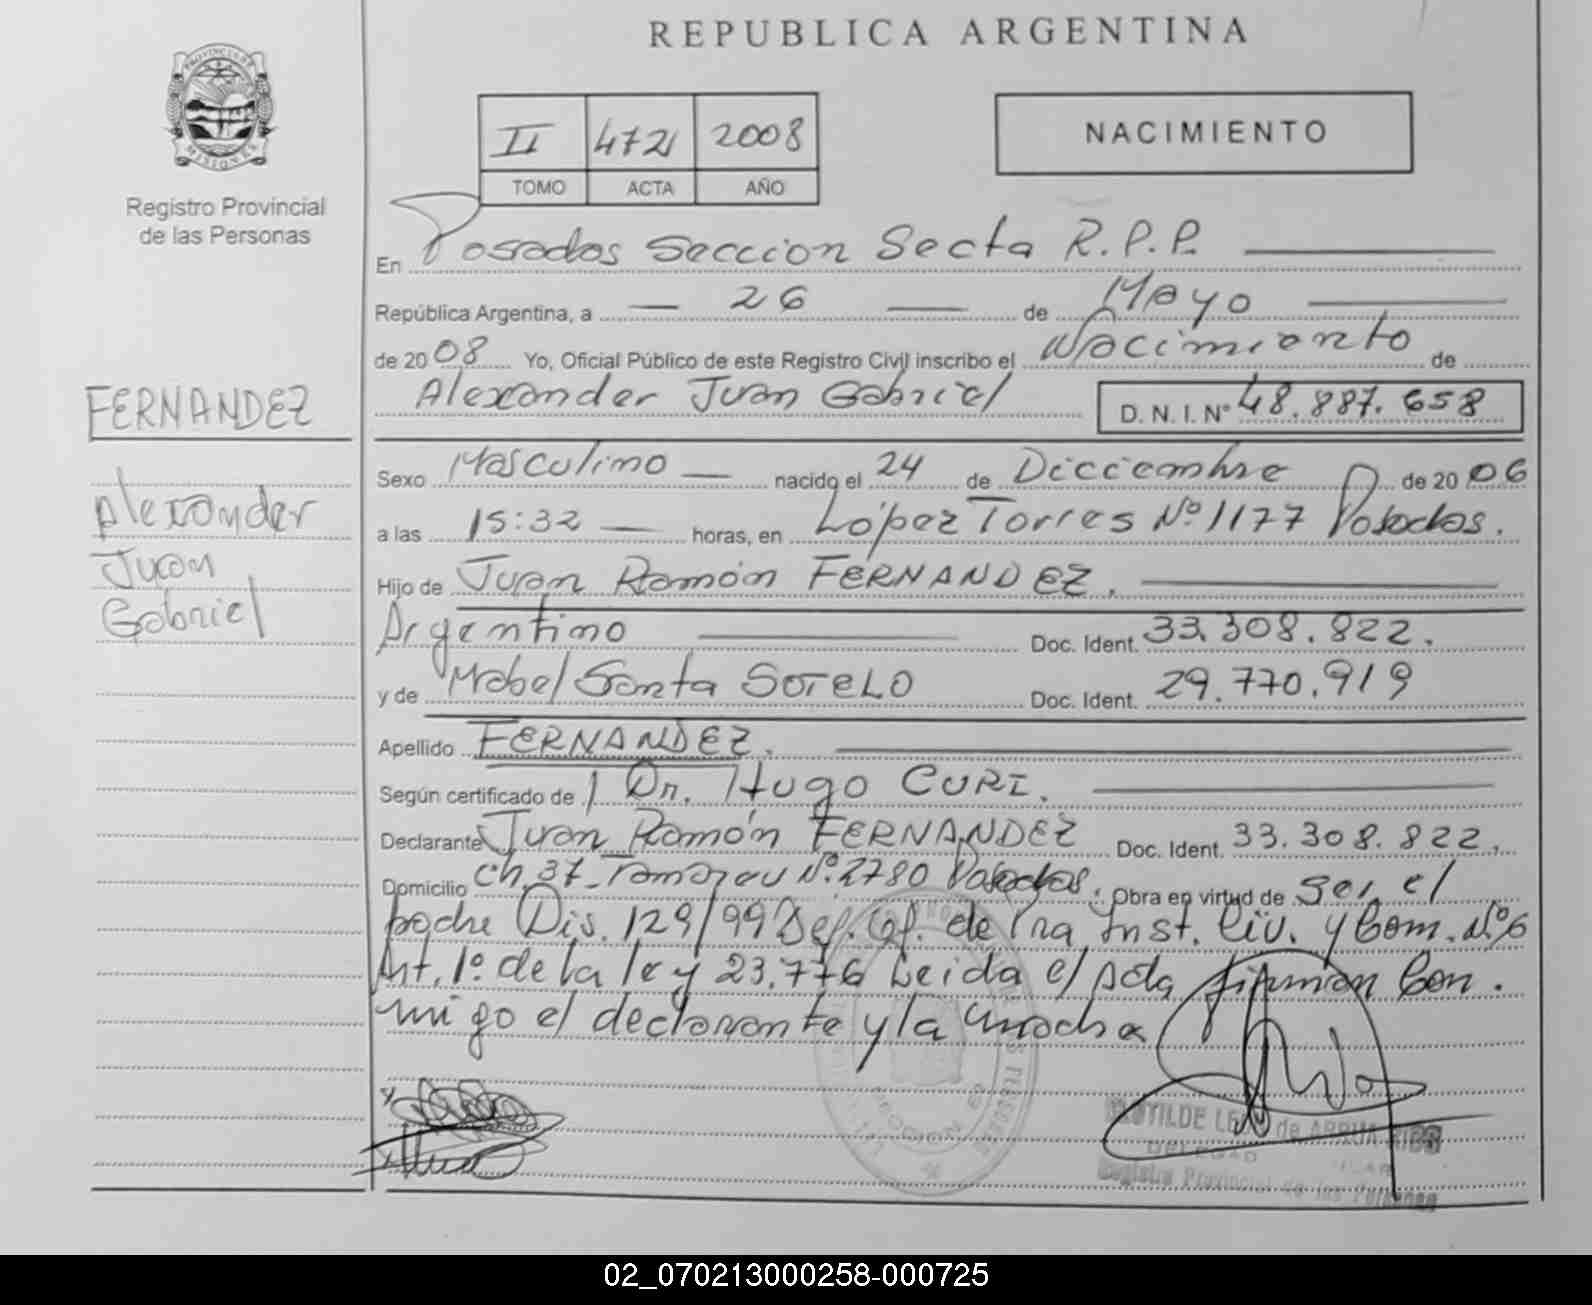 REPUBLICA ARGENTINA
PROVINCIA DE
MISIONES
Registro Provincial
de las Personas
II 472 2008
TOMO ACTA AÑO
NACIMIENTO
En Posadas Seccion Secta R.P.P.
República Argentina, a 26 de Mayo
de 2008 Yo, Oficial Público de este Registro Civil inscribo el Nacimiento de
Alexander Juan Gabriel D. N. I. N° 48.887.658
FERNANDEZ
Alexander
Juan
Gabriel
Sexo Masculino nacido el 24 de Dicciembre de 2006
a las 15:32 horas, en López Torres Nº 1177 Posadas.
Hijo de Juan Ramón FERNANDEZ.
Argentino Doc. Ident. 33.308.822.
y de Mabel Santa SOTELO Doc. Ident. 29.770.919
Apellido FERNANDEZ.
Según certificado de Dr. Hugo CURI.
Declarante Juan Ramón FERNANDEZ Doc. Ident. 33.308.822.
Domicilio Ch. 37 Nº 2780 Posadas. Obra en virtud de Ser el
padre Dis. 129/99 Def. Of. de 1ra Inst. Civ. y Com. Nº 6
Art. 1º de la ley 23.776 Leida el Acta firman Con.
migo el declarante y la madre
CLOTILDE de ARRUA
Registro Provincial de las Personas
02_070213000258-000725